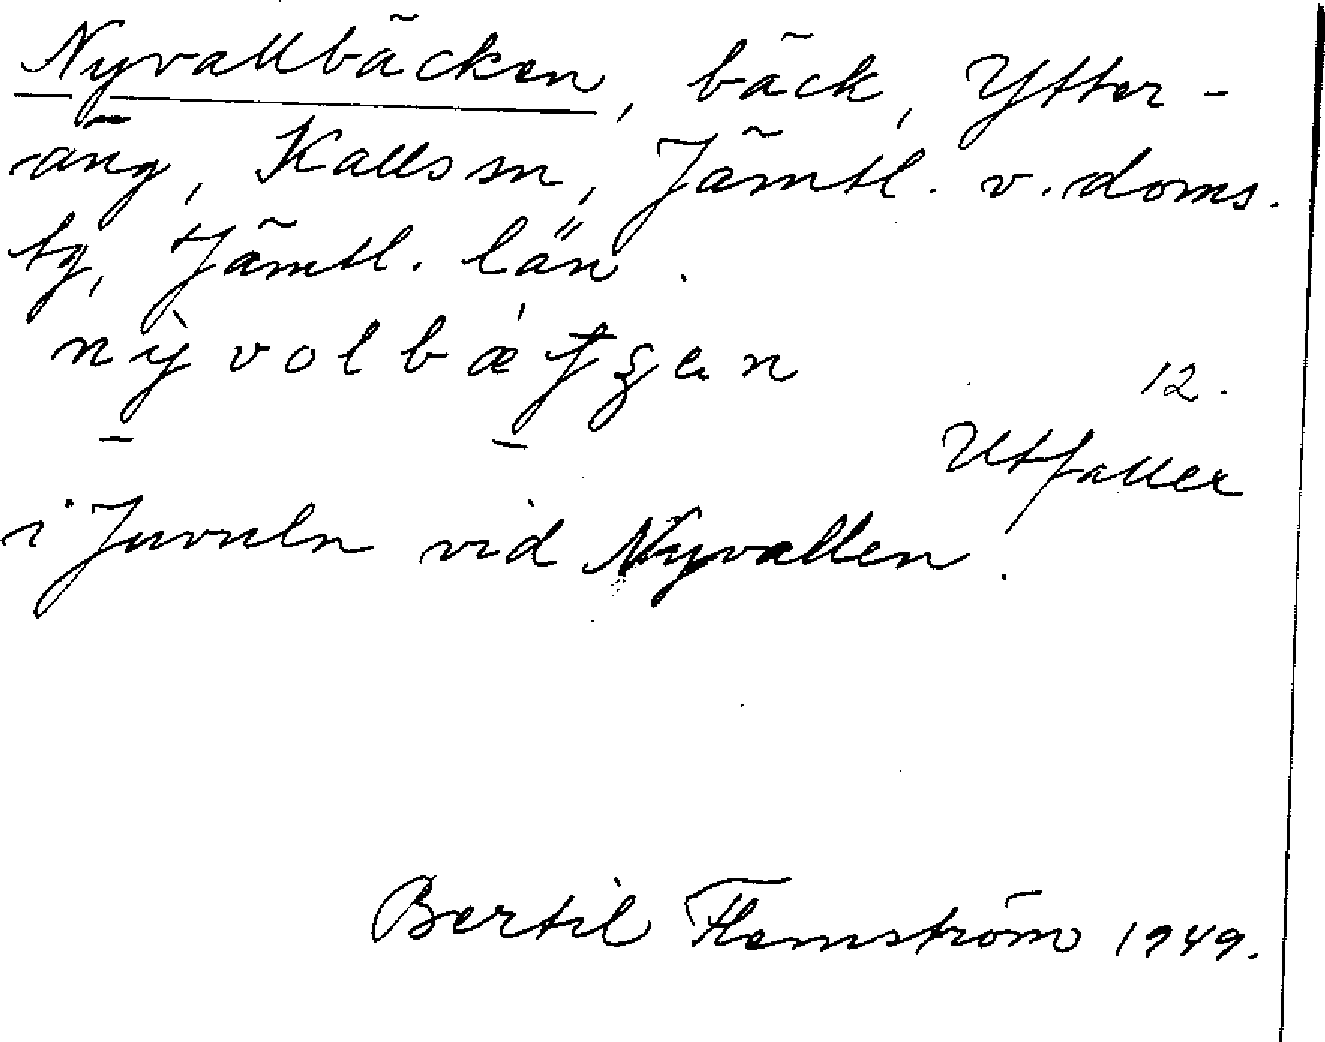 Nyvallbäcken, bäck, Ytter-
äng, Kalls sn, Jämtl. v. doms.
tg, Jämtl. län.
12.
Utfaller
i Juvuln vid Nyvallen.
Bertil Flemström 1949.